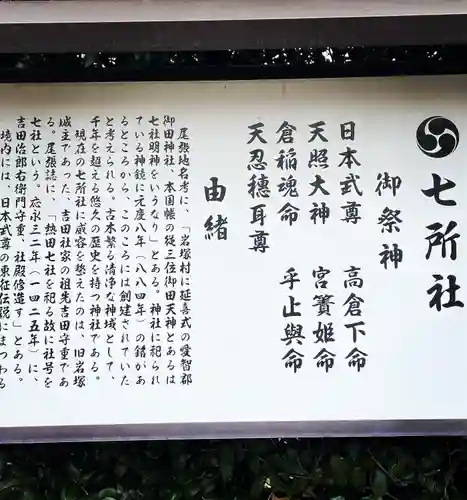 七所社
御祭神
日本武尊　高倉下命
天照大神　宮簀姫命
倉稲魂命　乎止與命
天忍穗耳尊
由緒
尾張地名考に、「岩塚村に延喜式の愛智郡
御田神社、本国帳の従三位御田天神とあるは
七社明神をいうなり」とある。神社に祀られ
ている神鏡に元慶八年（八八四年）の銘があ
るところから、このころには創建されていた
と考えられる。古木繁る清浄な神域として、
千年を超える悠久の歴史を持つ神社である。
現在の七所社に威容を整えたのは、旧岩塚
城主であった、吉田社家の祖先吉田守重であ
る。尾張誌に、「熱田七社を祀る故に社号を
七社という。応永三二年（一四二五年）に、
吉田治郎右衛門守重、社殿修造す」とある。
境内には、日本武尊の東征伝説にまつわる